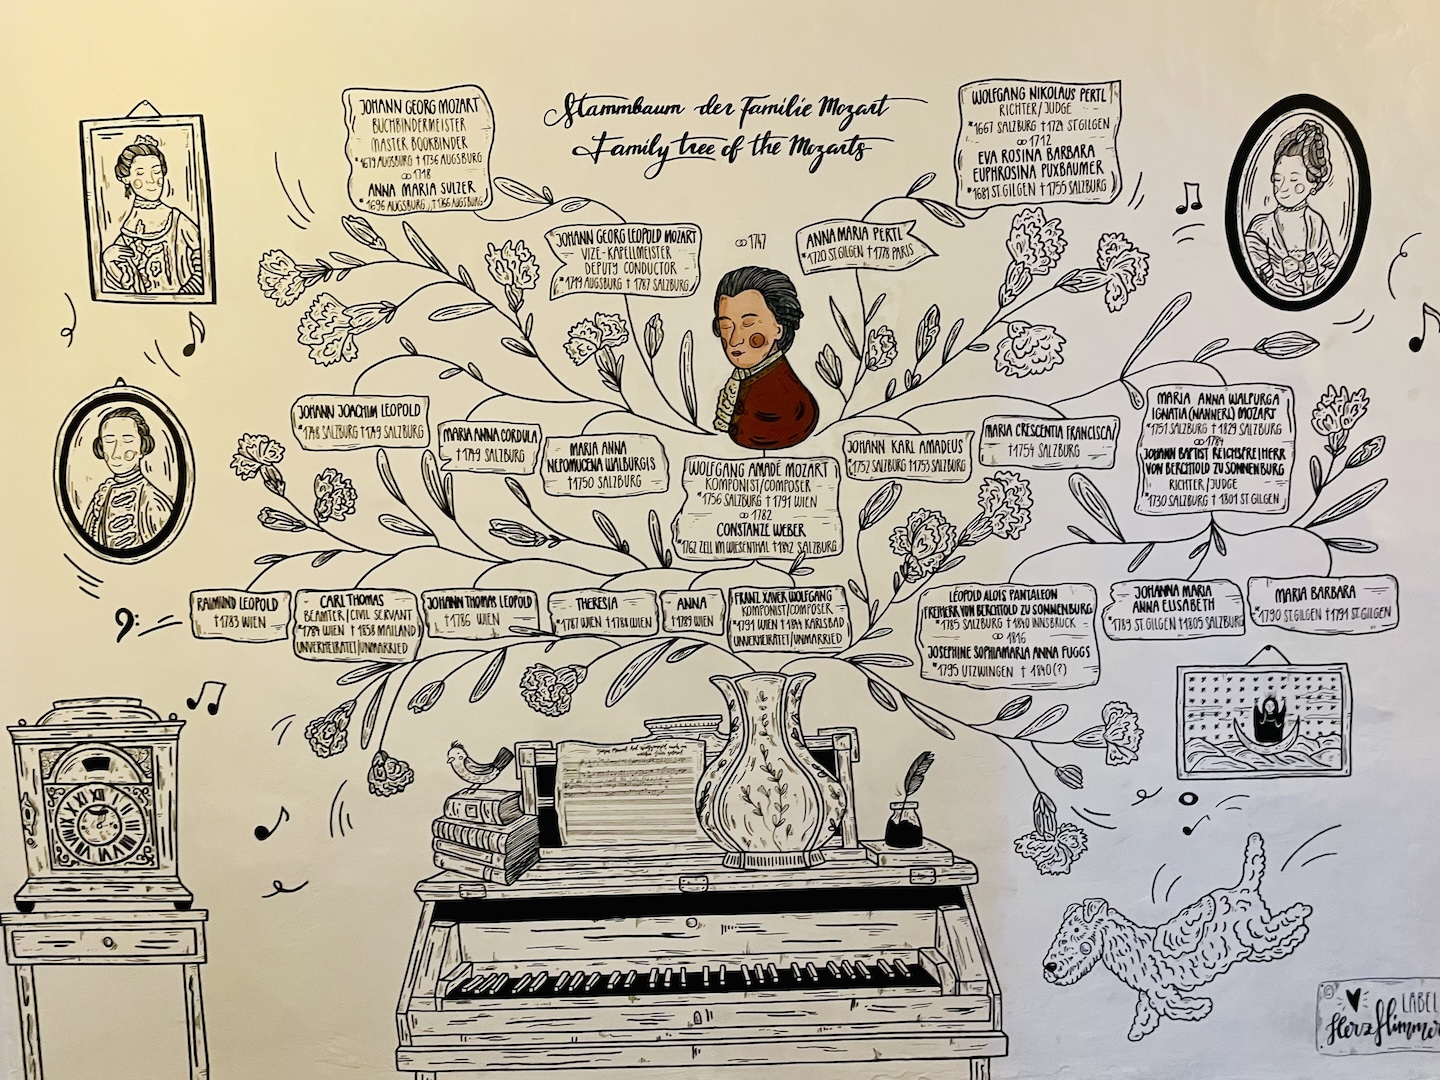 Stammbaum der Familie Mozart
Family tree of the Mozarts
JOHANN GEORG MOZART
BUCHBINDERMEISTER
MASTER BOOKBINDER
*1679 AUGSBURG †1736 AUGSBURG
∞1718
ANNA MARIA SULZER
*1696 AUGSBURG †1766 AUGSBURG
WOLFGANG NIKOLAUS PERTL
RICHTER/JUDGE
*1667 SALZBURG †1724 ST.GILGEN
∞1712
EVA ROSINA BARBARA
EUPHROSINA PUXBAUMER
*1681 ST.GILGEN †1755 SALZBURG
JOHANN GEORG LEOPOLD MOZART
VIZE-KAPELLMEISTER
DEPUTY CONDUCTOR
*1719 AUGSBURG †1787 SALZBURG
∞1747
ANNA MARIA PERTL
*1720 ST.GILGEN †1778 PARIS
JOHANN JOACHIM LEOPOLD
*1748 SALZBURG †1749 SALZBURG
MARIA ANNA CORDULA
†1749 SALZBURG
MARIA ANNA
NEPOMUCENA WALBURGIS
†1750 SALZBURG
WOLFGANG AMADÉ MOZART
KOMPONIST/COMPOSER
*1756 SALZBURG †1791 WIEN
∞1782
CONSTANZE WEBER
*1762 ZELL IM WIESENTHAL †1842 SALZBURG
JOHANN KARL AMADEUS
*1752 SALZBURG †1753 SALZBURG
MARIA CRESCENTIA FRANCISCA
†1754 SALZBURG
MARIA ANNA WALPURGA
IGNATIA (NANNERL) MOZART
*1751 SALZBURG †1829 SALZBURG
∞1784
JOHANN BAPTIST REICHSFREIHERR
VON BERCHTOLD ZU SONNENBURG
RICHTER/JUDGE
*1730 SALZBURG †1801 ST.GILGEN
RAIMUND LEOPOLD
†1783 WIEN
CARL THOMAS
BEAMTER/CIVIL SERVANT
*1784 WIEN †1858 MAILAND
UNVERHEIRATET/UNMARRIED
JOHANN THOMAS LEOPOLD
†1786 WIEN
THERESIA
*1787 WIEN †1788 WIEN
ANNA
†1789 WIEN
FRANZ XAVER WOLFGANG
KOMPONIST/COMPOSER
*1791 WIEN †1844 KARLSBAD
UNVERHEIRATET/UNMARRIED
LEOPOLD ALOIS PANTALEON
FREIHERR VON BERCHTOLD ZU SONNENBURG
*1785 SALZBURG †1840 INNSBRUCK
∞1816
JOSEPHINE SOPHIAMARIA ANNA FUGGS
*1795 UTZWINGEN †1840(?)
JOHANNA MARIA
ANNA ELISABETH
*1789 ST.GILGEN †1805 SALZBURG
MARIA BARBARA
*1790 ST.GILGEN †1791 ST.GILGEN
LABEL
Herzflimmer